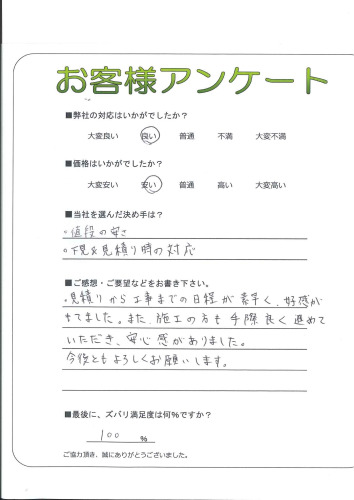 お客様アンケート
■弊社の対応はいかがでしたか?
大変良い 良い 普通 不満 大変不満
■価格はいかがでしたか?
大変安い 安い 普通 高い 大変高い
■当社を選んだ決め手は?
・値段の安さ
・下見&見積り時の対応
■ご感想・ご要望などをお書き下さい。
・見積りから工事までの日程が素早く、好感が
もてました。また、施工の方も手際良く進めて
いただき、安心感がありました。
今後ともよろしくお願いします。
■最後に、ズバリ満足度は何%ですか?
100 %
ご協力頂き、誠にありがとうございました。